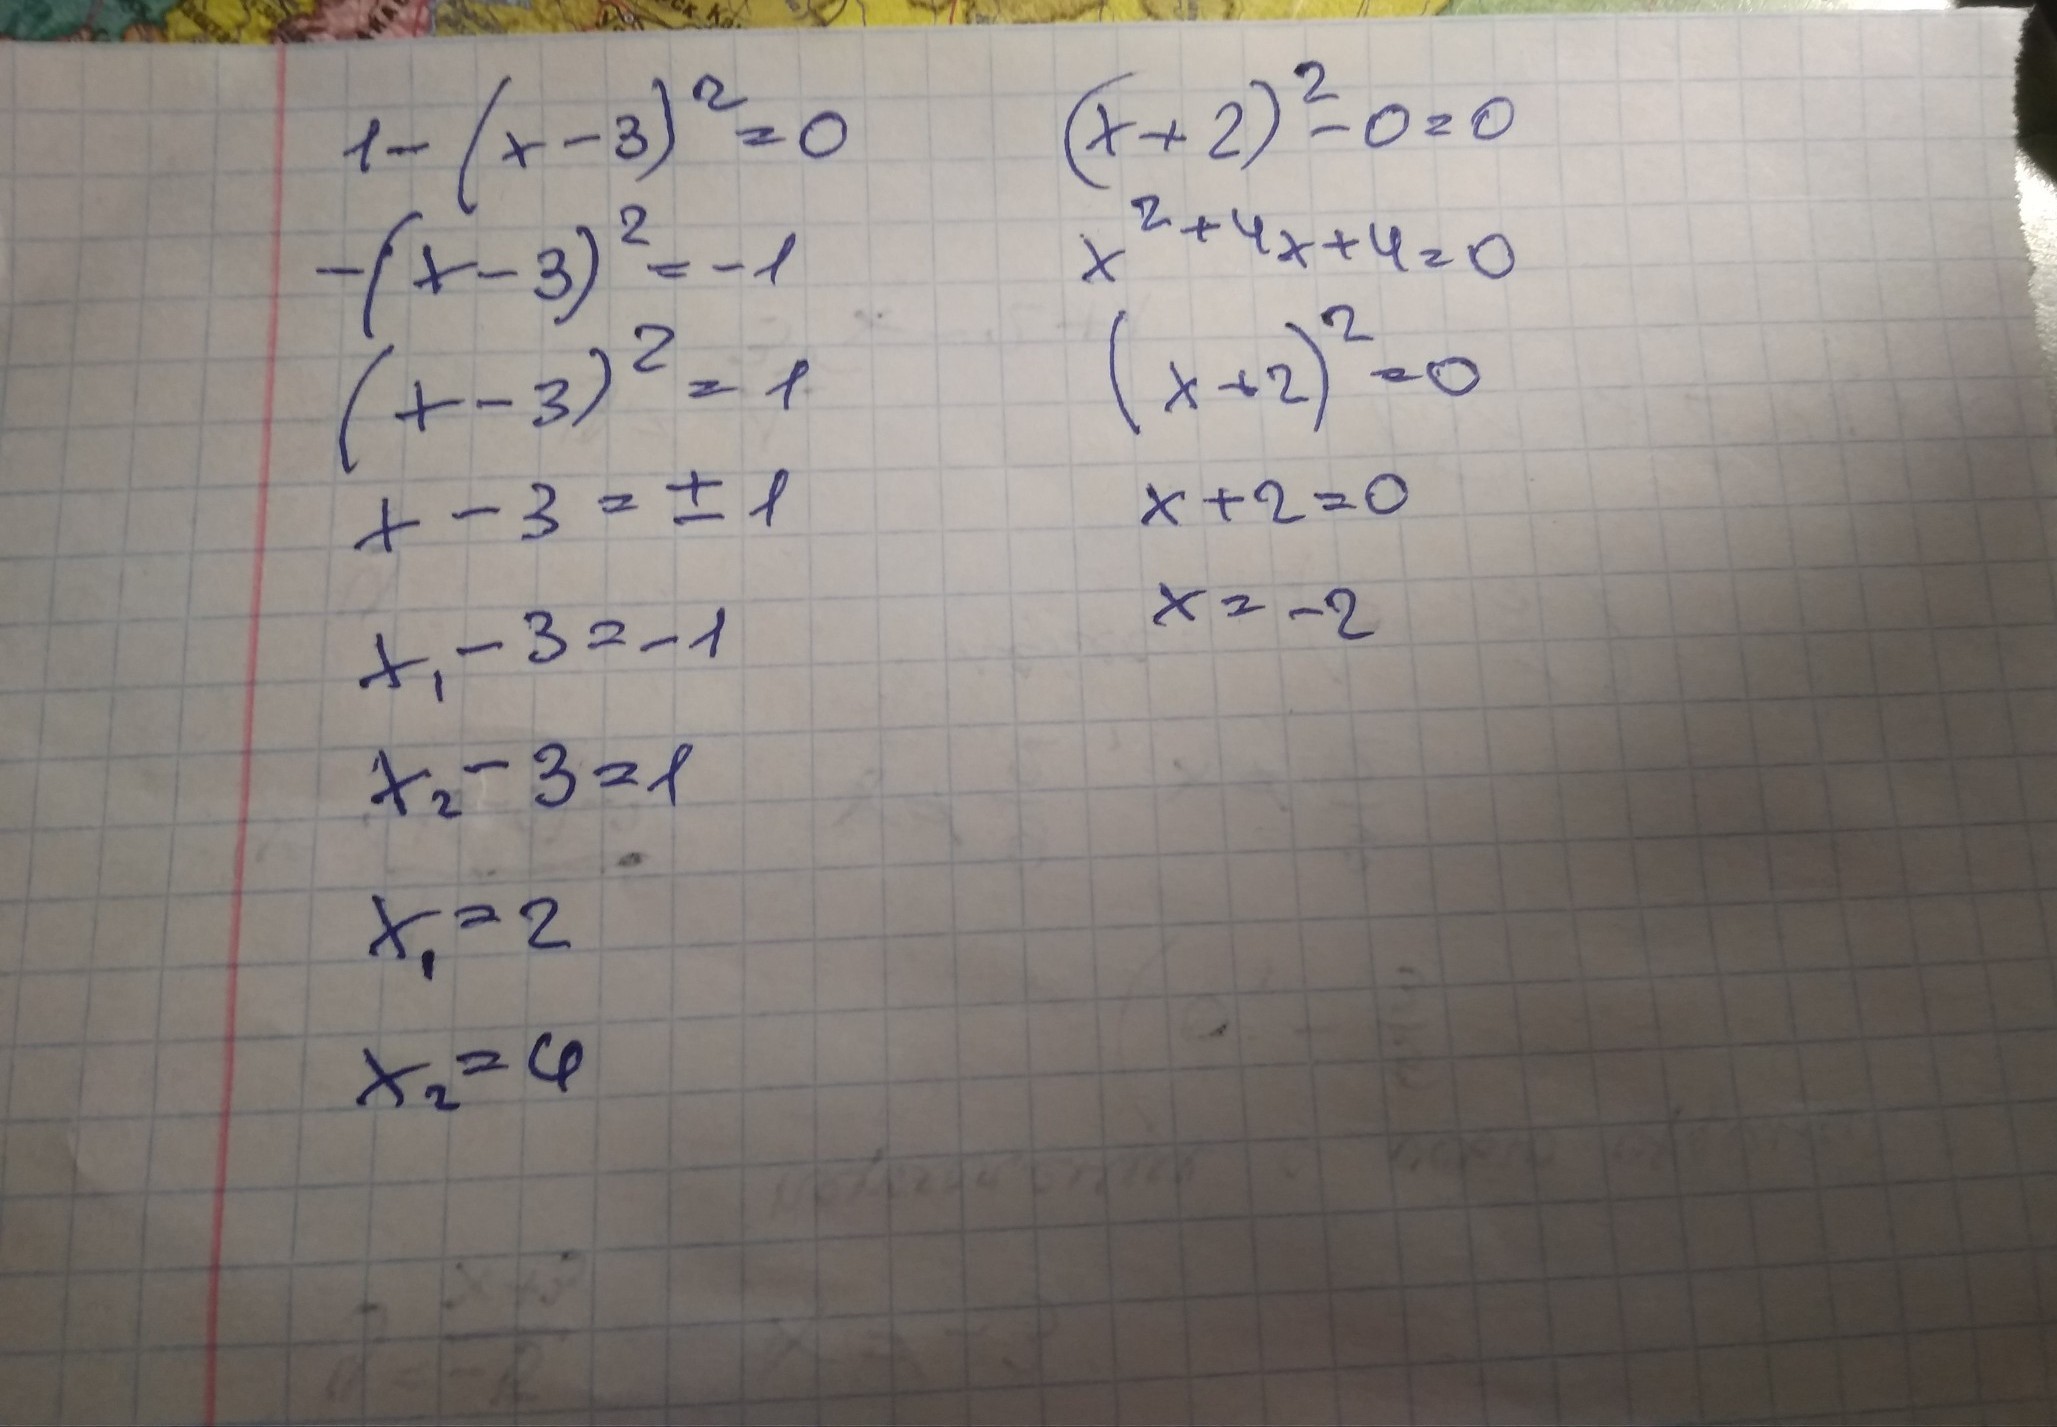 1-(x-3)²=0
-(x-3)²=-1
(x-3)²=1
x-3=±1
x₁-3=-1
x₂-3=1
x₁=2
x₂=4
(x+2)²-0=0
x²+4x+4=0
(x+2)²=0
x+2=0
x=-2